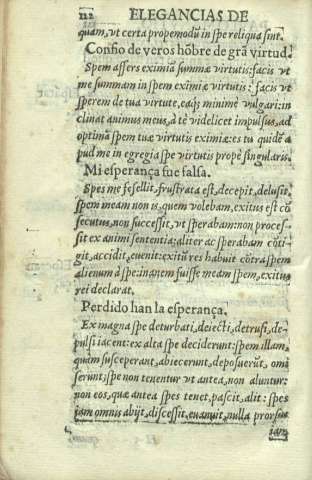 112 ELEGANCIAS DE
quam, vt certa propemodũ in spe reliqua sint.
Confio de veros hõbre de grã virtud.
Spem affers eximiã summæ virtutis: facis vt
me summam in spem eximiæ virtutis: facis vt
sperem de tua virtute, eaq; minimè vulgari: in
clinat animus meus, à te videlicet impulsus, ad
optimã spem tuæ virtutis eximiæ: es tu quidẽ a
pud me in egregia spe virtutis propè singularis.
Mi esperança fue falsa.
Spes me fefellit, frustrata est, decepit, delusit,
spem meam non is, quem volebam, exitus est cõ
secutus, non successit, vt sperabam: non proces-
sit ex animi sententia: aliter ac sperabam cõti-
git, accidit, euenit: exitũ res habuit cõtra spem
alienum à spe: inanem fuisse meam spem, exitus
rei declarat.
Perdido han la esperança.
Ex magna spe deturbati, deiecti, detrusi, de-
pulsi iacent: ex alta spe deciderunt: spem illam,
quam susceperant, abiecerunt, deposuerũt, omi
serunt: spe non tenentur vt antea, non aluntur:
non eos, quæ antea spes tenet, pascit, alit: spes
iam omnis abijt, discessit, euanuit, nulla prorsus
iam